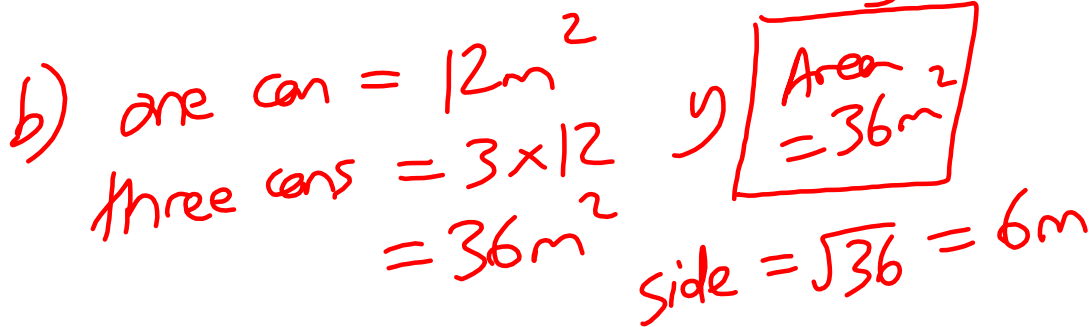 b) one can = 12m²
three cans = 3×12
= 36m²
y
Area
= 36m²
side = √36 = 6m